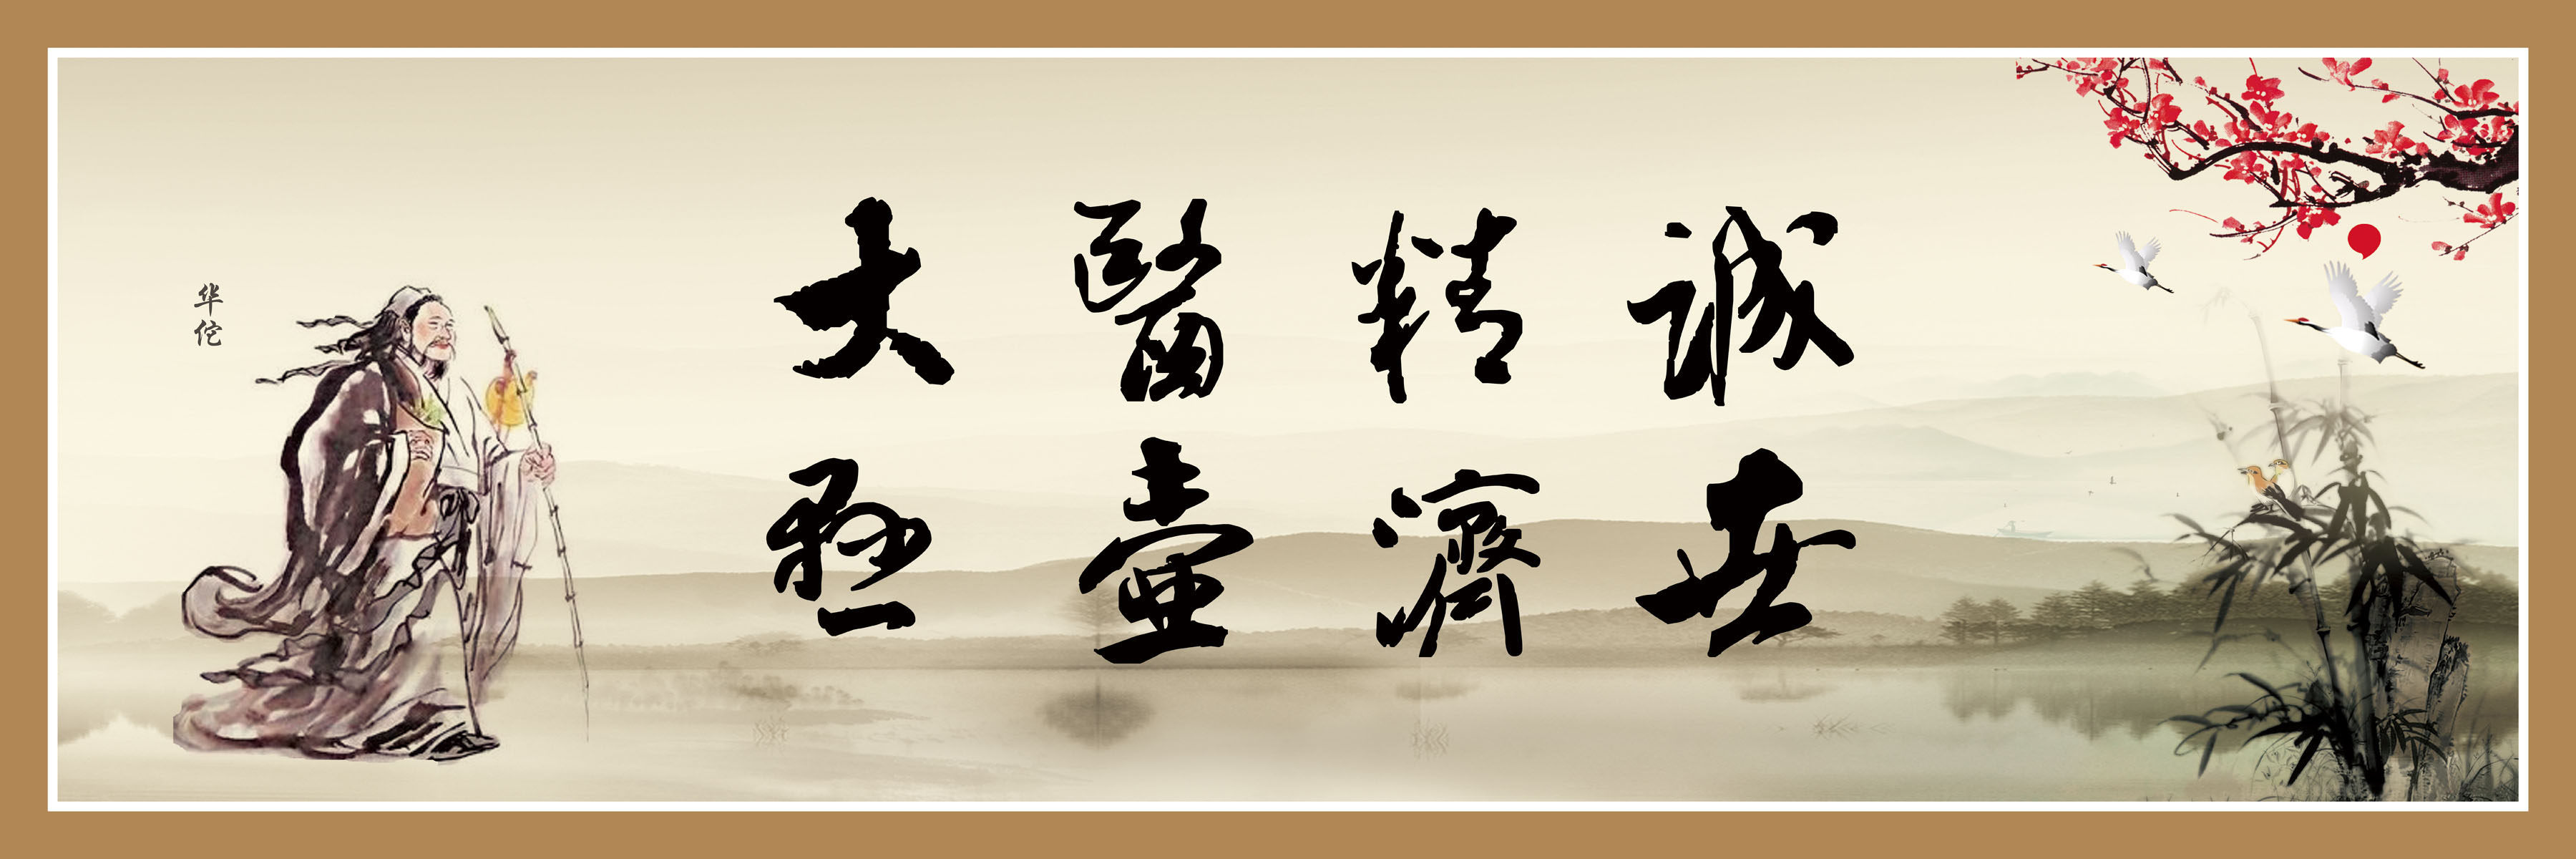 华佗
大醫精誠
懸壺濟世